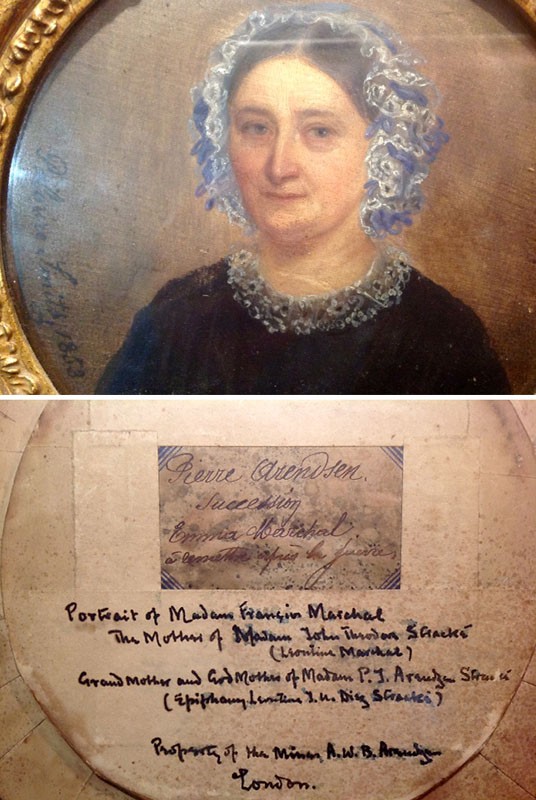 1853
Pierre Arendsen.
Succession
Emma Marchal
à remettre après la guerre,
Portrait of Madam François Marchal
The Mother of Madam John Theodore Stracké
(Leontine Marchal)
Grand Mother and God Mother of Madam P. J. Arendzen Stracké
(Epiphany Leontine Diez Stracké)
Property of the Minas A. W. B. Arendzen
London.